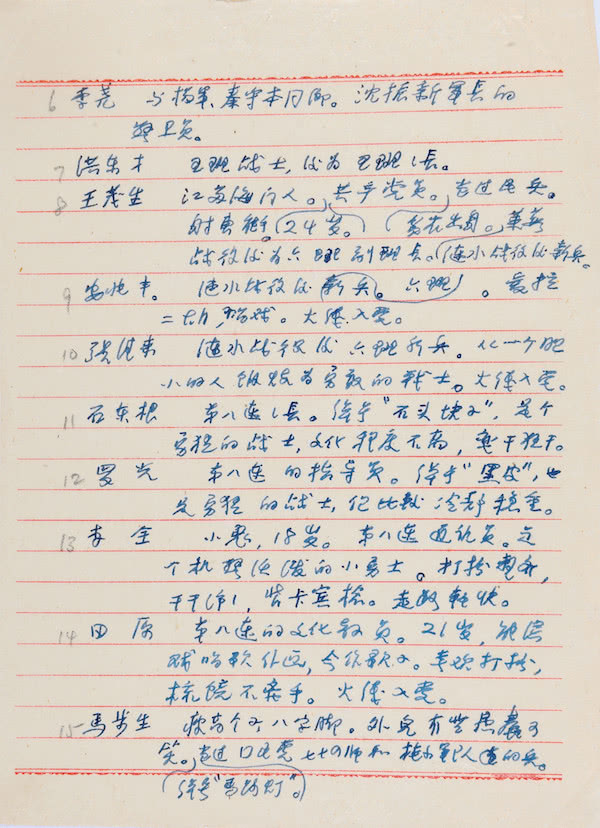 6 李尧 与杨军、秦守本同乡。沈振新军长的
警卫员。
7 洪东才 五班战士,后为五班班长。
8 王茂生 江苏海门人。共产党员。当过民兵。
射击术。(24岁。) 莱芜
战役后为六班副班长。(涟水战役后新兵。
9 安兆丰。 涟水战役后新兵。六班。
二胡,唱戏。火线入党。
10 张洪来 涟水战役后六班新兵。从一个胆
小的人锻炼为勇敢的战士。火线入党。
11 石东根 第八连连长。绰号“石头块子”,是个
勇猛的战士,文化程度不高,蛮干猛干。
12 罗光 第八连的指导员。绰号“黑皮”,也
是勇猛的战士,但比较冷静稳重。
13 李全 小鬼,18岁。第八连通讯员。是
个机智活泼的小勇士。打扮
干干净净,背卡宾枪。走路轻快。
14 田原 第八连的文化教员。21岁,能漫
唱歌作画,会作歌子。喜欢打扮,
梳镜不离手。火线入党。
15 馬步生 瘦高个子,八字脚。外貌有些愚蠢可
笑。当过国民党七十四师和 的兵。
(绰号“馬路灯”。)